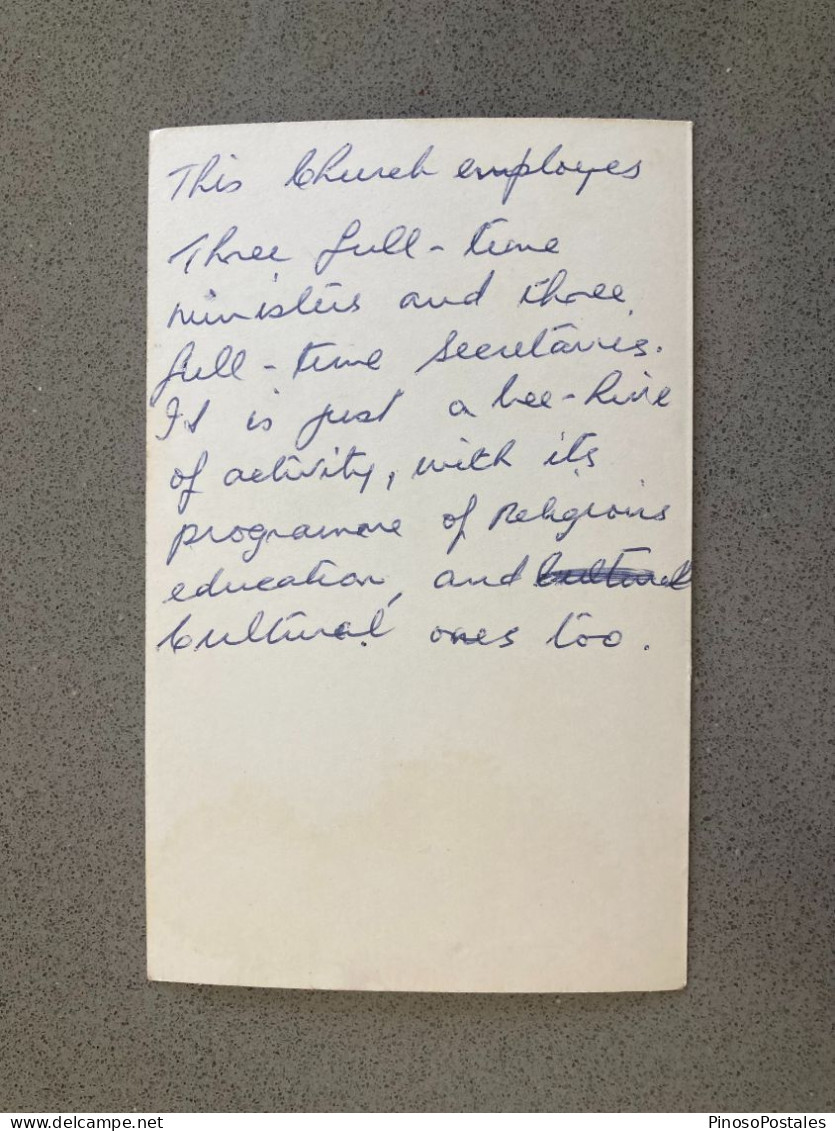 This Church employes
Three full-time
ministers and three
full-time secretaries.
It is just a bee-hive
of activity, with its
programme of Religious
education, and cultural
Cultural ones too.
PinosoPostales